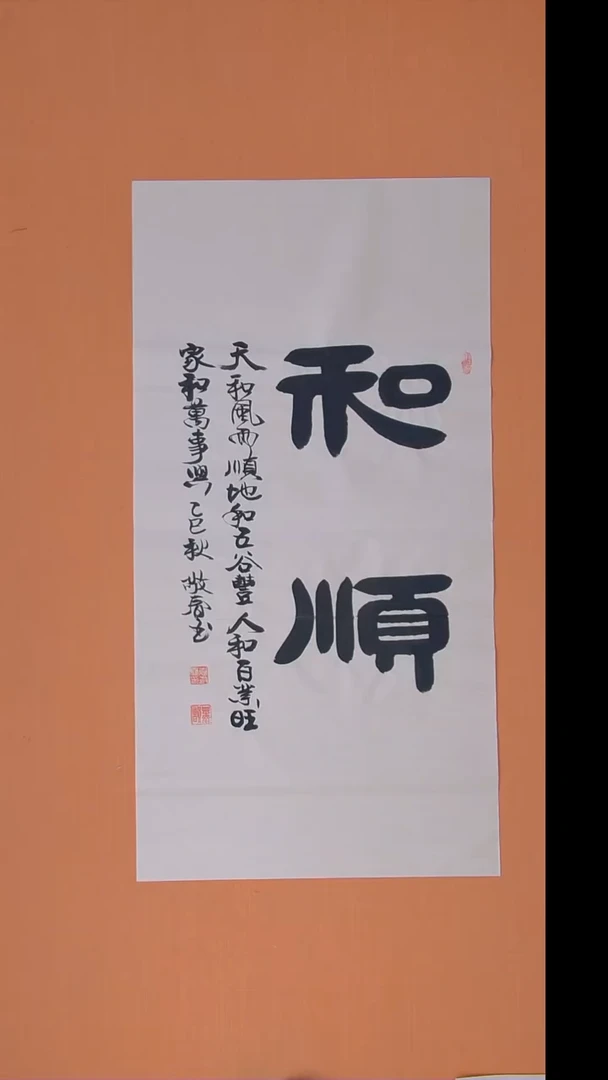 和順
天和風雨順地和五谷豐人和百業旺
家和萬事興乙巳秋敬春書